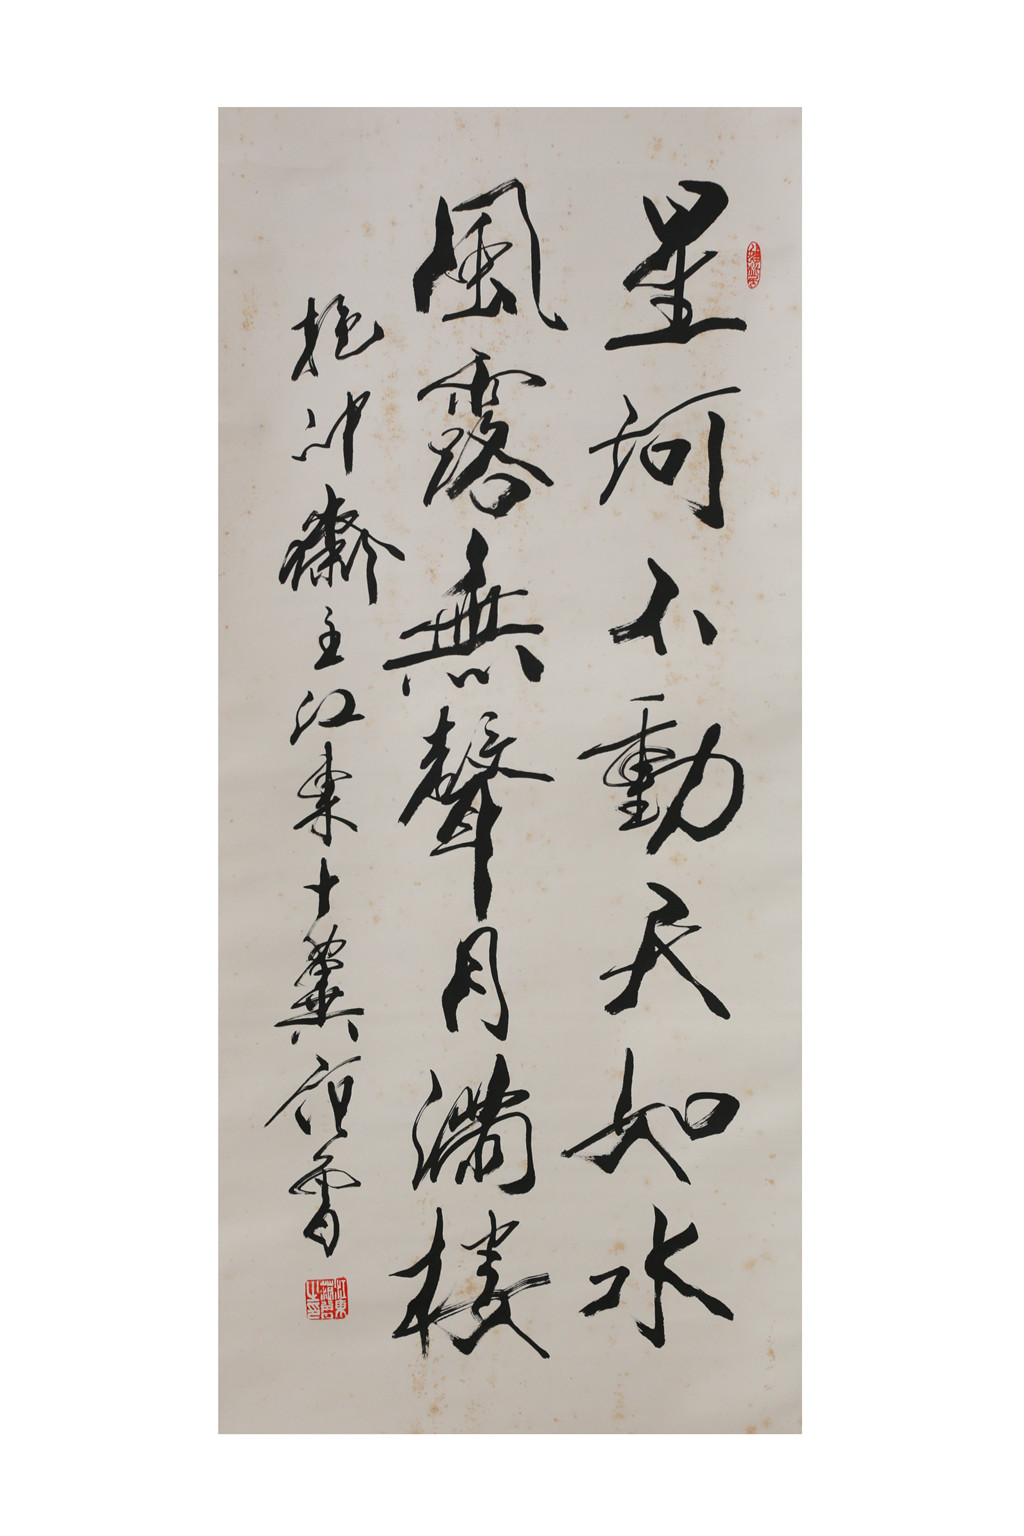 星河不動天如水
風露無聲月滿樓
抱冲齋主江東十翼范曾